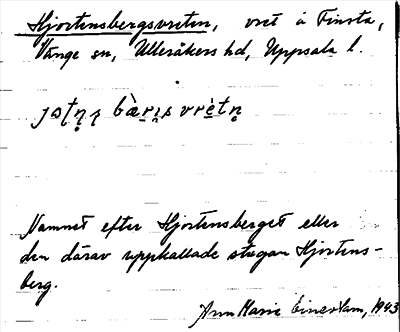 Hjortensbergsvreten, vret å Finsta,
Vänge sn, Ulleråkers hd, Uppsala l.
Namnet efter Hjortensberget eller
den därav uppkallade stugan Hjortens-
berg.
Ann Marie 1943